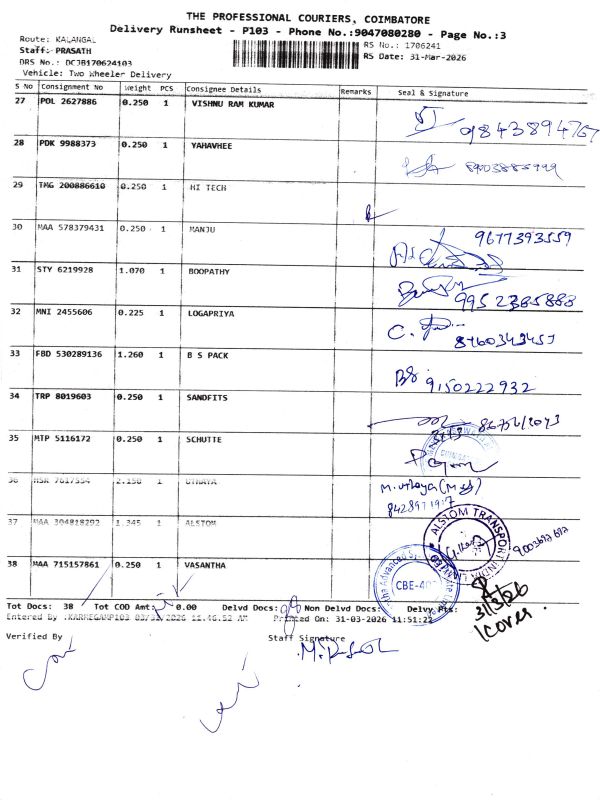 THE PROFESSIONAL COURIERS, COIMBATORE
Delivery Runsheet - P103 - Phone No.:9047080280 - Page No.:3
Route: KALANGAL
RS No.: 1706241
Staff: PRASATH
RS Date: 31-Mar-2026
DRS No.: DCJB170624103
Vehicle: Two Wheeler Delivery
S No Consignment No Weight PCS Consignee Details Remarks Seal & Signature
27 POL 2627886 0.250 1 VISHNU RAM KUMAR
28 PDK 9988373 0.250 1 YAHAVHEE
29 TMG 200886610 0.250 1 HI TECH
30 MAA 578379431 0.250 1 MANJU 9677393559
31 STY 6219928 1.070 1 BOOPATHY 9952385888
32 MNI 2455606 0.225 1 LOGAPRIYA C.
33 FBD 530289136 1.260 1 B S PACK BS 9150222932
34 TRP 8019603 0.250 1 SANDFITS
35 MTP 5116172 0.250 1 SCHUTTE
36 HSR 7617554 2.150 1 UTHAYA
37 MAA 304818292 1.345 1 ALSTOM ALSTOM TRANSPORT INDIA
38 MAA 715157861 0.250 1 VASANTHA CBE-
31/3/26
Tot Docs: 38 Tot COD Amt: 0.00 Delvd Docs: Non Delvd Docs: Delvy Pts:
Entered By :KARREGAMP103 03/31/2026 11.46.52 AM Printed On: 31-03-2026 11:51:22
Verified By Staff Signature